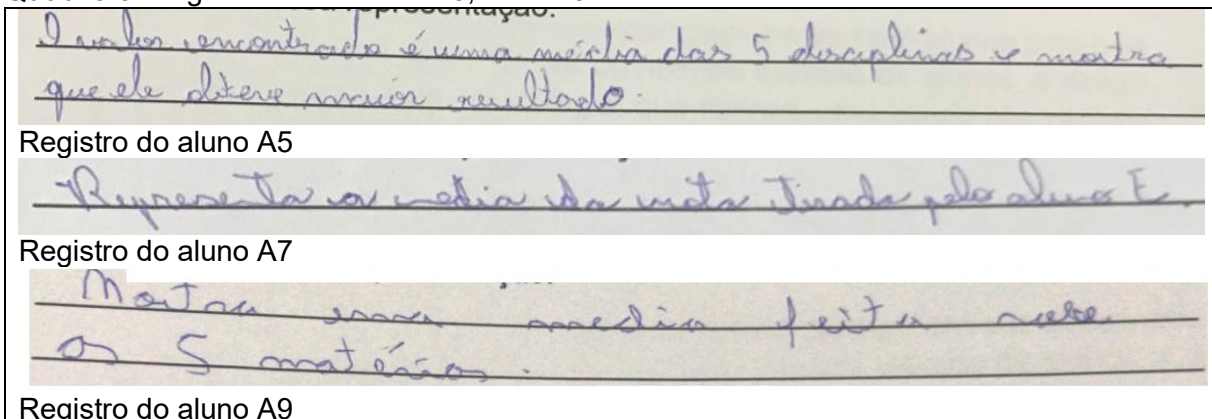 representação.
O valor encontrado é uma média das 5 disciplinas e mostra
que ele obteve maior resultado.
Registro do aluno A5
Representa a média da nota tirada pelo aluno E.
Registro do aluno A7
Mostra uma media feita
as 5 matérias.
Registro do aluno A9